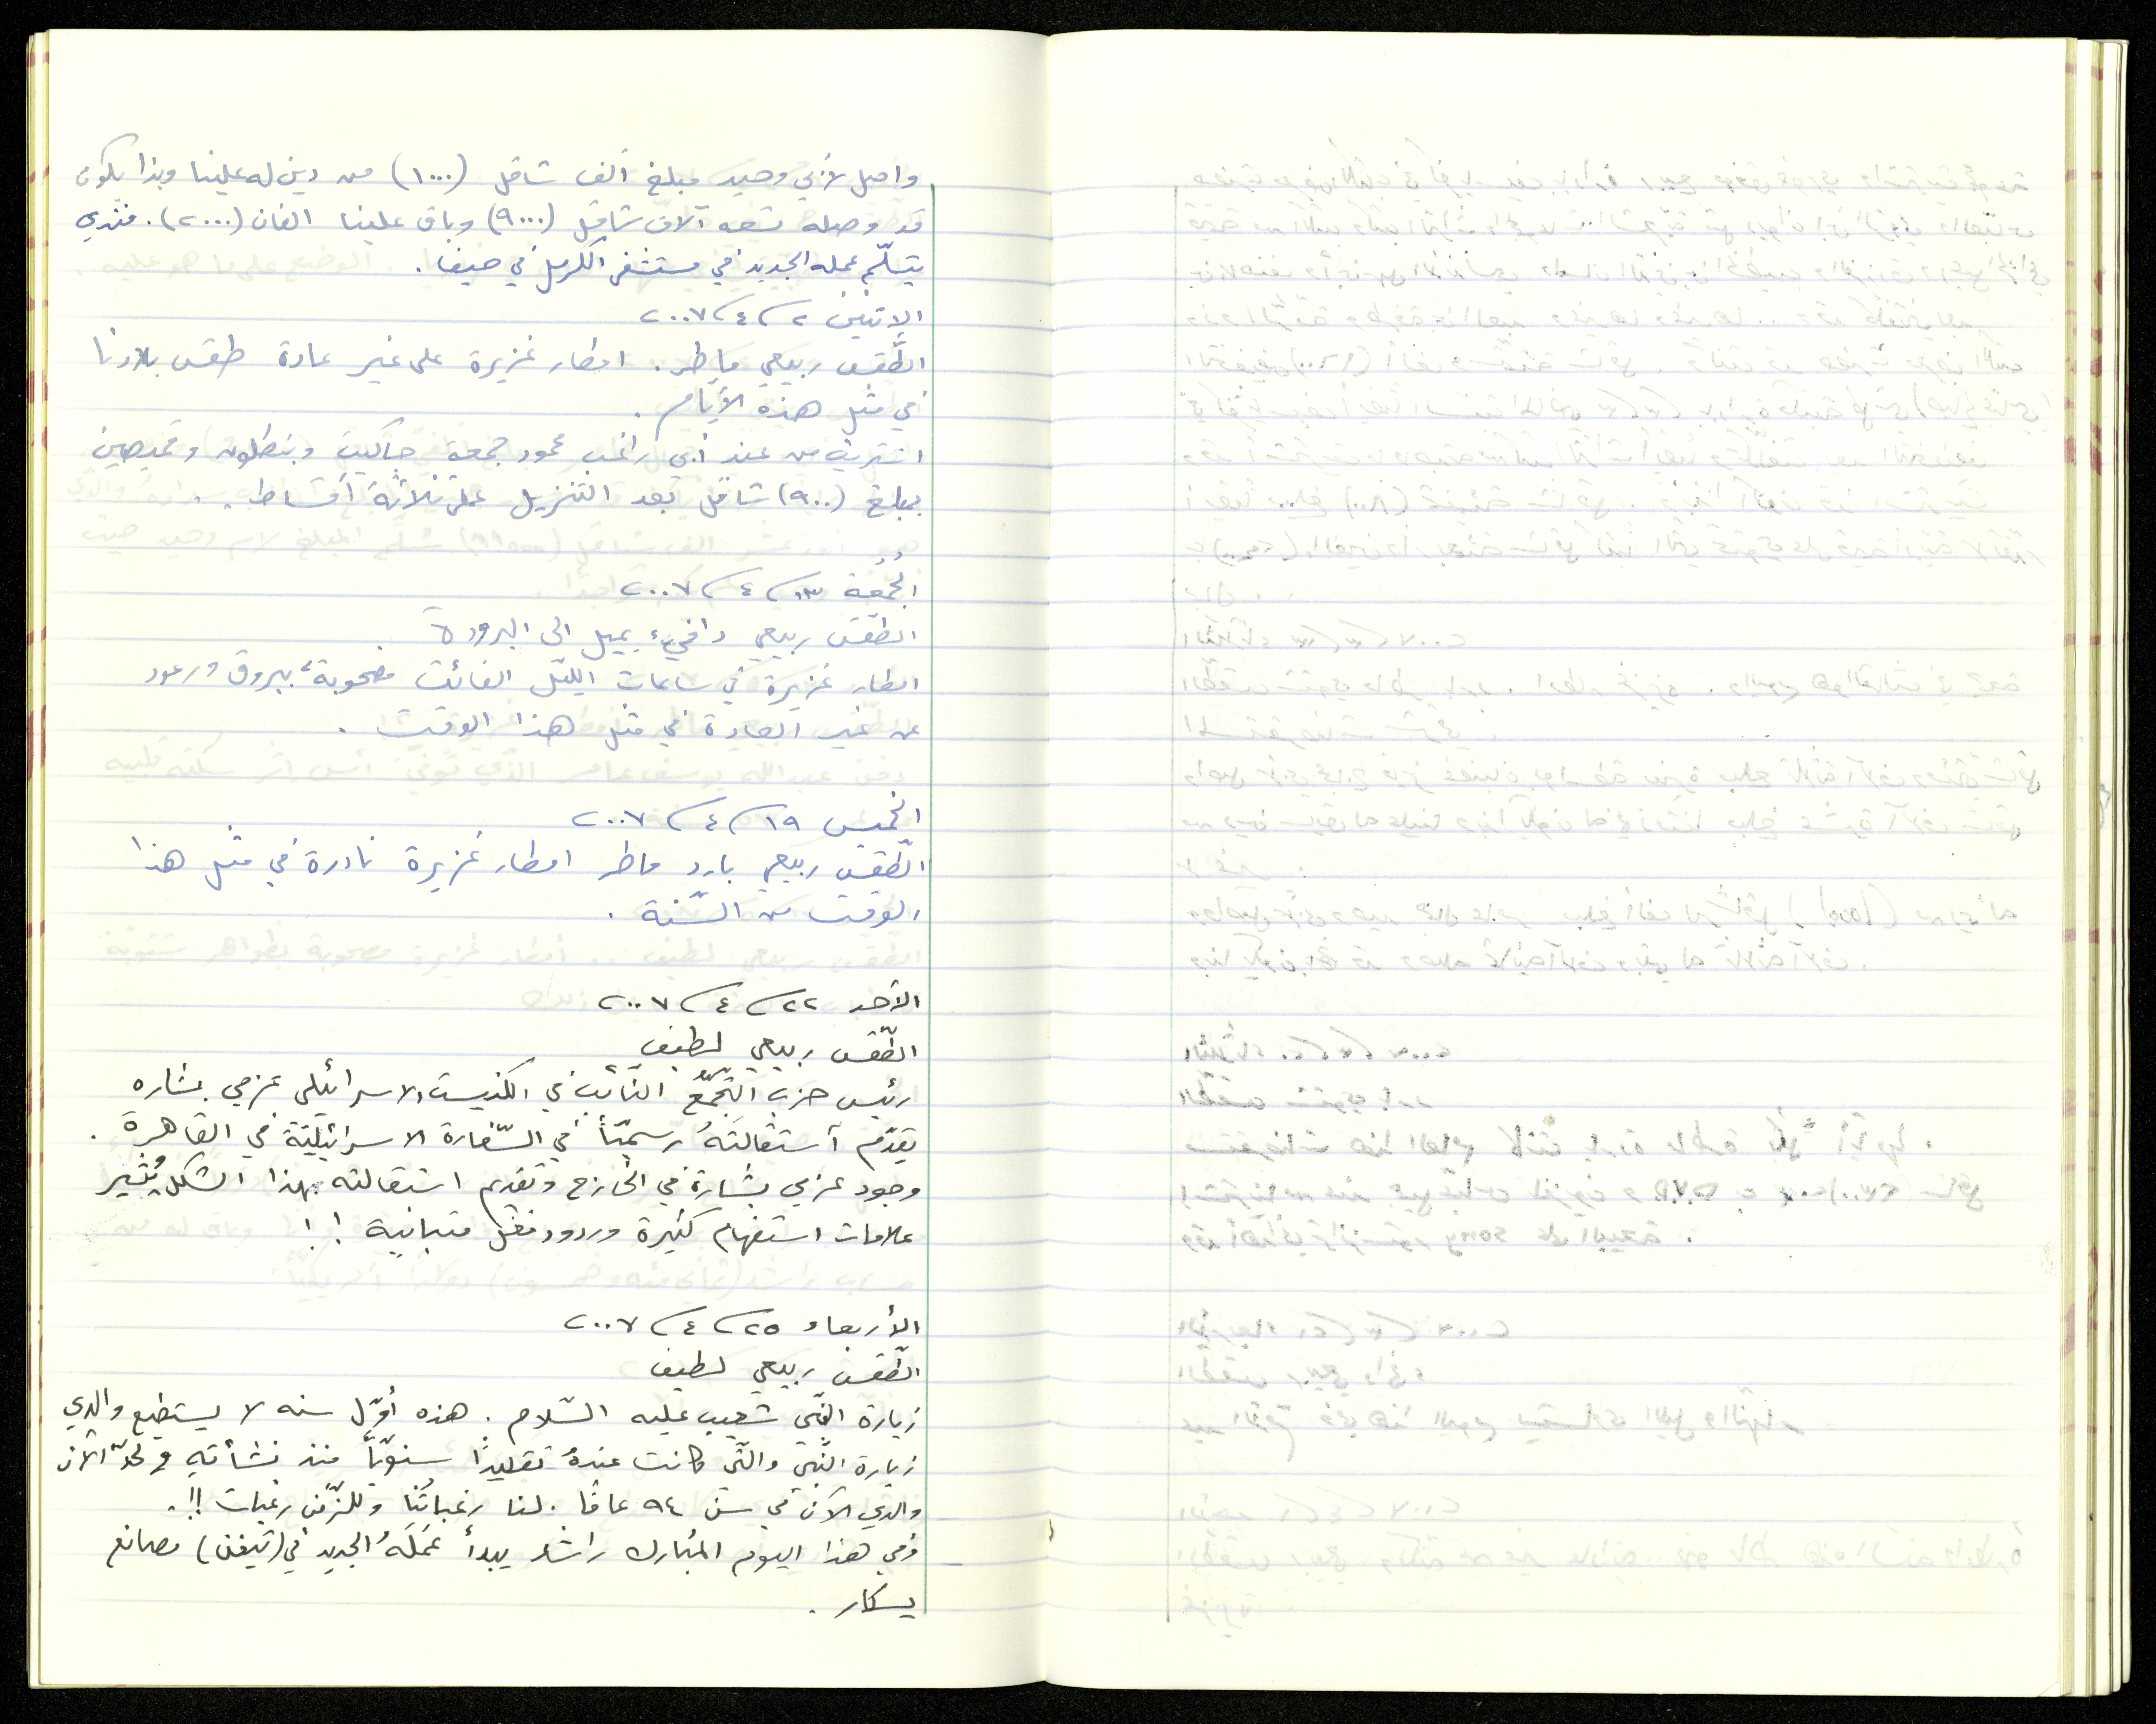 واصل لأبي وحيد مبلغ ألف شاقل (١٠٠٠) من دين له علينا وبذا يكون
قد وصله تسعه آلاف شاقل (٩٠٠٠) وباق علينا الفان (٢٠٠٠). فندي
يتسلّم عمله الجديد في مستشفى الكرمل في حيفا.
الاثنين ٢/٤/٢٠٠٧
الطّقس ربيعي ماطر. امطار غزيرة على غير عادة طقس بلادنا
في مثل هذه الأيام.
اشتريت من عند أبي راغب محمود جمعة جاكيت وبنطلون وقميصين
بمبلغ (٩٠٠) شاقل بعد التنزيل على ثلاثة أقساط.
الجُمُعة ١٣/٤/٢٠٠٧
الطّقس ربيعي دافيء يميل الى البرودة
امطار غزيرة في ساعات الليّل الفائت مصحوبة ببروق ورعود
عن غير العادة في مثل هذا الوقت.
الخميس ١٩/٤/٢٠٠٧
الطّقس ربيعي بارد ماطر امطار غزيرة نادرة في مثل هذا
الوقت من السّنة.
الأحد ٢٢/٤/٢٠٠٧
الطّقس ربيعي لطيف
رئيس حزب التّجمّع النّائب في الكنيست الاسرائيلي عزمي بشاره
يقدّم آستقالتَهُ رسميّاً في السّفارة الاسرائيليّة في القاهرة.
وجود عزمي بشارة في الخارج وتقديم استقالته بهذا الشكل يُثير
علامات استفهام كثيرة وردود فعل متباينة !!
الأربعاء ٢٥/٤/٢٠٠٧
الطّقس ربيعي لطيف
زيارة النّبي شعيب عليه السّلام. هذه أوّل سنه لا يستطيع والدي
زيارة النّبي والتّي كانت عندهُ تقليدًا سنويّاً منذ نشأته ولحدّ الآن
والدي الآن في سن ٩٤ عامًا. لنا رغباتُنا وللزّمن رغبات !!.
وفي هذا اليوم المُبارك راشد يبدأ عَمَلَهُ الجديد في (تيفن) مصانع
يسكار.